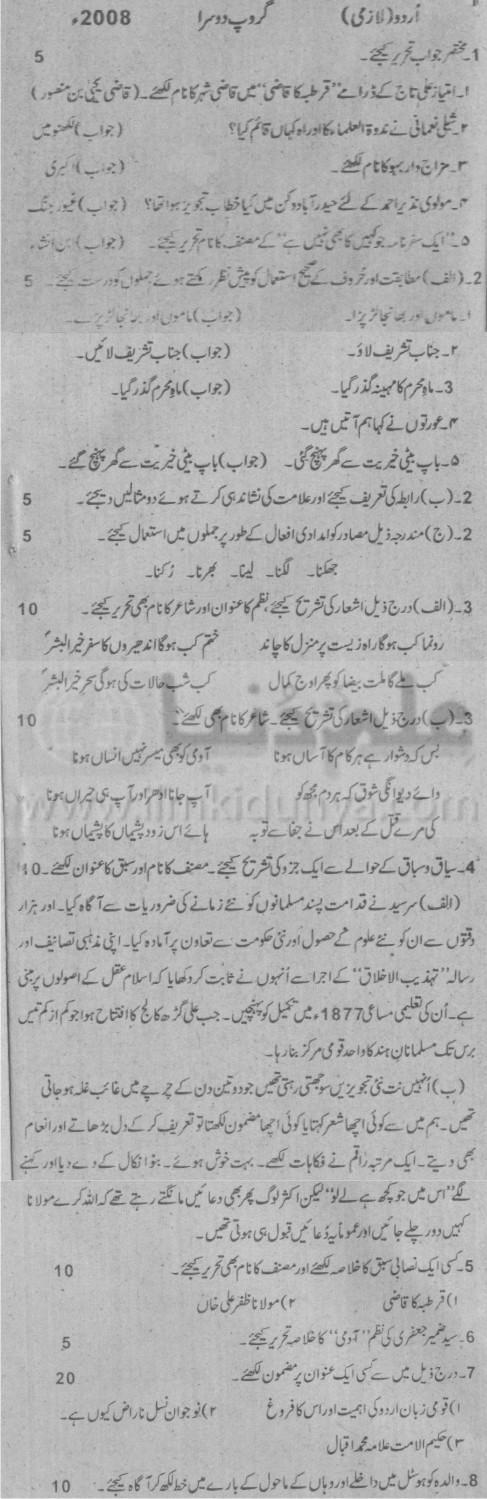 اُردو (لازمی) گروپ دوسرا 2008ء
1۔ مختصر جواب تحریر کیجئے۔ 5
۱۔ امتیاز علی تاج کے ڈرامے "قرطبہ کا قاضی" میں قاضی شہر کا نام لکھئے۔ (قاضی یحییٰ بن منصور)
۲۔ شبلی نعمانی نے ندوۃ العلماء کا ادارہ کہاں قائم کیا؟ (جواب) لکھنو میں
۳۔ مزاج دار بہو کا نام لکھئے۔ (جواب) اکبری
۴۔ مولوی نذیر احمد کے لئے حیدر آباد دکن میں کیا خطاب تجویز ہوا تھا؟ (جواب) غیور جنگ
۵۔ "ایک سفر نامہ جو کہیں کا بھی نہیں ہے" کے مصنف کا نام تحریر کیجئے۔ (جواب) ابن انشاء
2۔ (الف) مطابقت اور حروف کے صحیح استعمال کو پیش نظر رکھتے ہوئے جملوں کو درست کیجئے۔ 5
۱۔ ماموں اور بھانجا لڑ پڑا۔ (جواب) ماموں اور بھانجا لڑ پڑے۔
۲۔ جناب تشریف لاؤ۔ (جواب) جناب تشریف لائیں۔
3۔ ماہِ محرم کا مہینہ گذر گیا۔ (جواب) ماہِ محرم گذر گیا۔
۴۔ عورتوں نے کہا ہم آتیں ہیں۔
۵۔ باپ بیٹی خیریت سے گھر پہنچ گئی۔ (جواب) باپ بیٹی خیریت سے گھر پہنچ گئے۔
2۔ (ب) رابطہ کی تعریف کیجئے اور علامت کی نشاندہی کرتے ہوئے دو مثالیں دیجئے۔ 5
2۔ (ج) مندرجہ ذیل مصادر کو امدادی افعال کے طور پر جملوں میں استعمال کیجئے۔ 5
جھکنا۔ لگنا۔ لینا۔ بھرنا۔ رُکنا۔
3۔ (الف) درج ذیل اشعار کی تشریح کیجئے، نظم کا عنوان اور شاعر کا نام بھی تحریر کیجئے۔ 10
رونما کب ہوگا راہِ زیست پر منزل کا چاند ختم کب ہوگا اندھیروں کا سفر خیر البشرؐ
کب ملے گا ملت بیضا کو پھر اوج کمال کب شب حالات کی ہوگی سحر خیر البشرؐ
3۔ (ب) درج ذیل اشعار کی تشریح کیجئے۔ شاعر کا نام بھی لکھئے۔ 10
بس کہ دشوار ہے ہر کام کا آساں ہونا آدمی کو بھی میسر نہیں انساں ہونا
وائے دیوانگی شوق کہ ہر دم مجھ کو آپ جانا اُدھر اور آپ ہی حیراں ہونا
کی مرے قتل کے بعد اس نے جفا سے توبہ ہائے اس زود پشیماں کا پشیماں ہونا
علم کی دنیا
www.ilmkidunya.com
4۔ سیاق و سباق کے حوالے سے ایک جزو کی تشریح کیجئے۔ مصنف کا نام اور سبق کا عنوان لکھئے۔ 10
(الف) سرسید نے قدامت پسند مسلمانوں کو نئے زمانے کی ضروریات سے آگاہ کیا۔ اور ہزار
دقتوں سے ان کو نئے علوم کے حصول اور نئی حکومت سے تعاون پر آمادہ کیا۔ اپنی مذہبی تصانیف اور
رسالہ "تہذیب الاخلاق" کے اجرا سے اُنہوں نے ثابت کر دکھایا کہ اسلام عقل کے اصولوں پر مبنی
ہے۔ اُن کی تعلیمی مساعی 1877ء میں تکمیل کو پہنچیں۔ جب علی گڑھ کالج کا افتتاح ہوا جو کم از کم تیس
برس تک مسلمانانِ ہند کا واحد قومی مرکز بنا رہا۔
(ب) اُنہیں نت نئی تجویزیں سوجھتی رہتی تھیں جو دو تین دن کے چرچے میں غائب غلہ ہو جاتی
تھیں۔ ہم میں سے کوئی اچھا شعر کہتا یا کوئی اچھا مضمون لکھتا تو تعریف کر کے دل بڑھاتے اور انعام
بھی دیتے۔ ایک مرتبہ راقم نے فکاہات لکھے۔ بہت خوش ہوئے۔ بٹوا نکال کے دے دیا اور کہنے
لگے "اس میں جو کچھ ہے لے لو" لیکن اکثر لوگ پھر بھی دعائیں مانگتے رہتے تھے کہ اللہ کرے مولانا
کہیں دور چلے جائیں اور عموماً یہ دُعائیں قبول ہی ہوتی تھیں۔
5۔ کسی ایک نصابی سبق کا خلاصہ لکھئے اور مصنف کا نام بھی تحریر کیجئے۔ 10
۱) قرطبہ کا قاضی ۲) مولانا ظفر علی خاں
6۔ سید ضمیر جعفری کی نظم "آدمی" کا خلاصہ تحریر کیجئے۔ 5
7۔ درج ذیل میں سے کسی ایک عنوان پر مضمون لکھئے۔ 20
۱) قومی زبان اردو کی اہمیت اور اس کا فروغ ۲) نوجوان نسل ناراض کیوں ہے۔
۳) حکیم الامت علامہ محمد اقبال
8۔ والدہ کو ہوسٹل میں داخلے اور وہاں کے ماحول کے بارے میں خط لکھ کر آگاہ کیجئے۔ 10